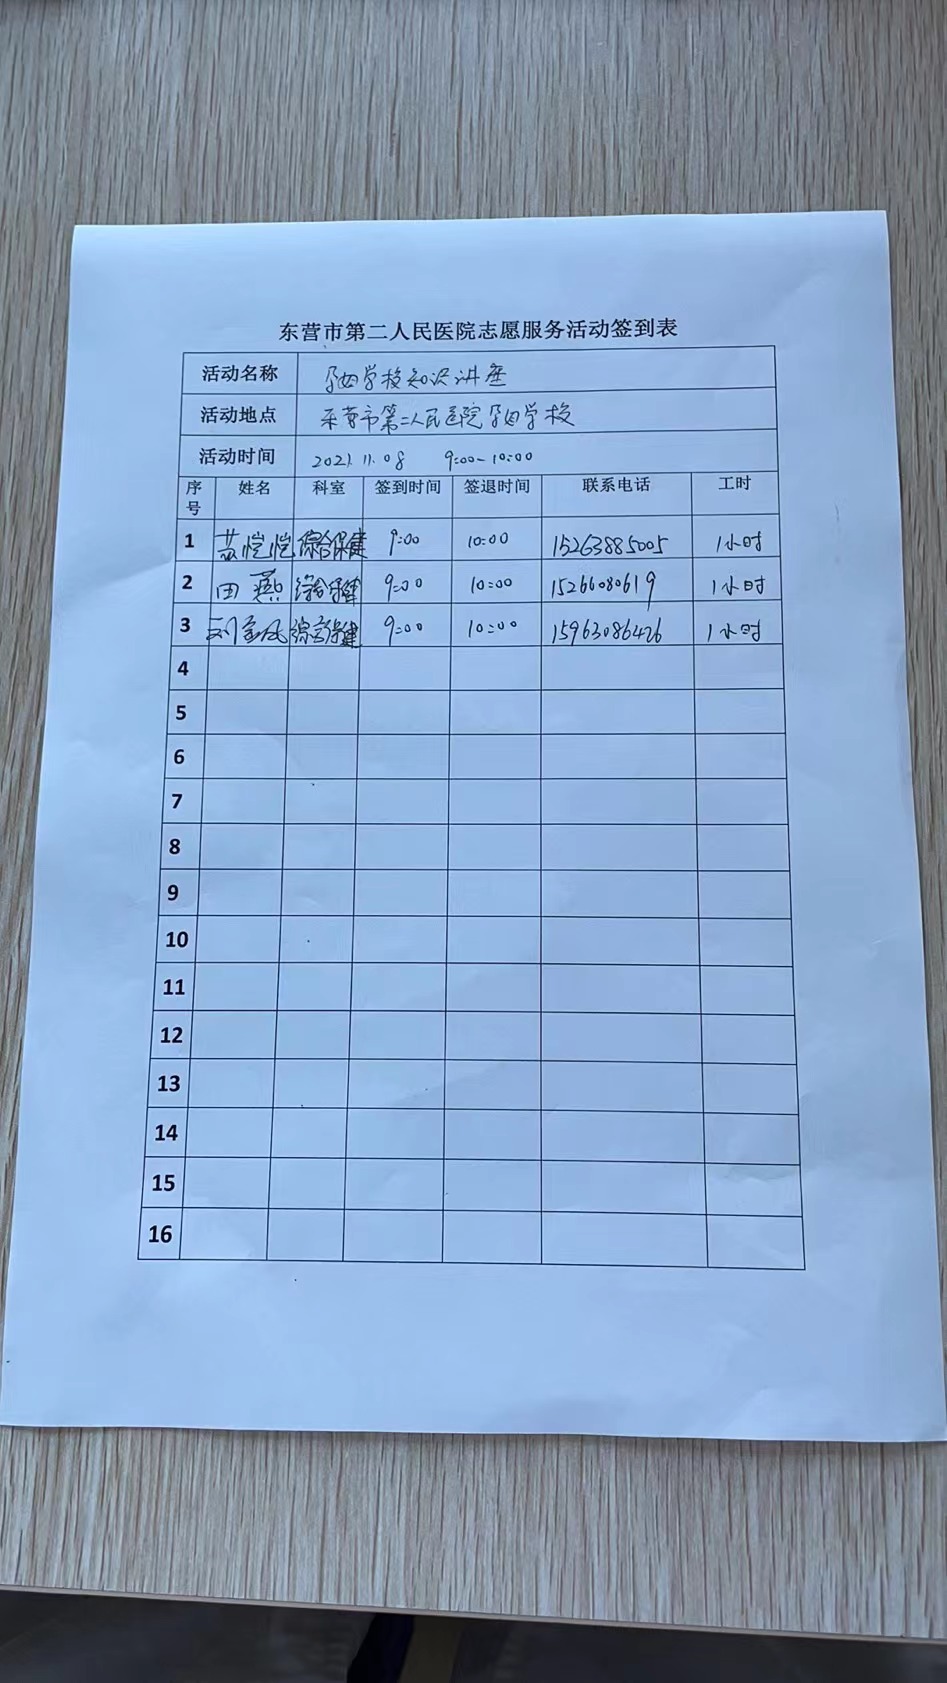 东营市第二人民医院志愿服务活动签到表
活动名称 孕妇学校知识讲座
活动地点 东营市第二人民医院孕妇学校
活动时间 2021.11.08 9:00-10:00
序号 姓名 科室 签到时间 签退时间 联系电话 工时
1 恺恺 综合保健 9:00 10:00 15263885005 1小时
2 田燕 综合保健 9:00 10:00 15266080619 1小时
3 刘 综合保健 9:00 10:00 15963086426 1小时
4
5
6
7
8
9
10
11
12
13
14
15
16